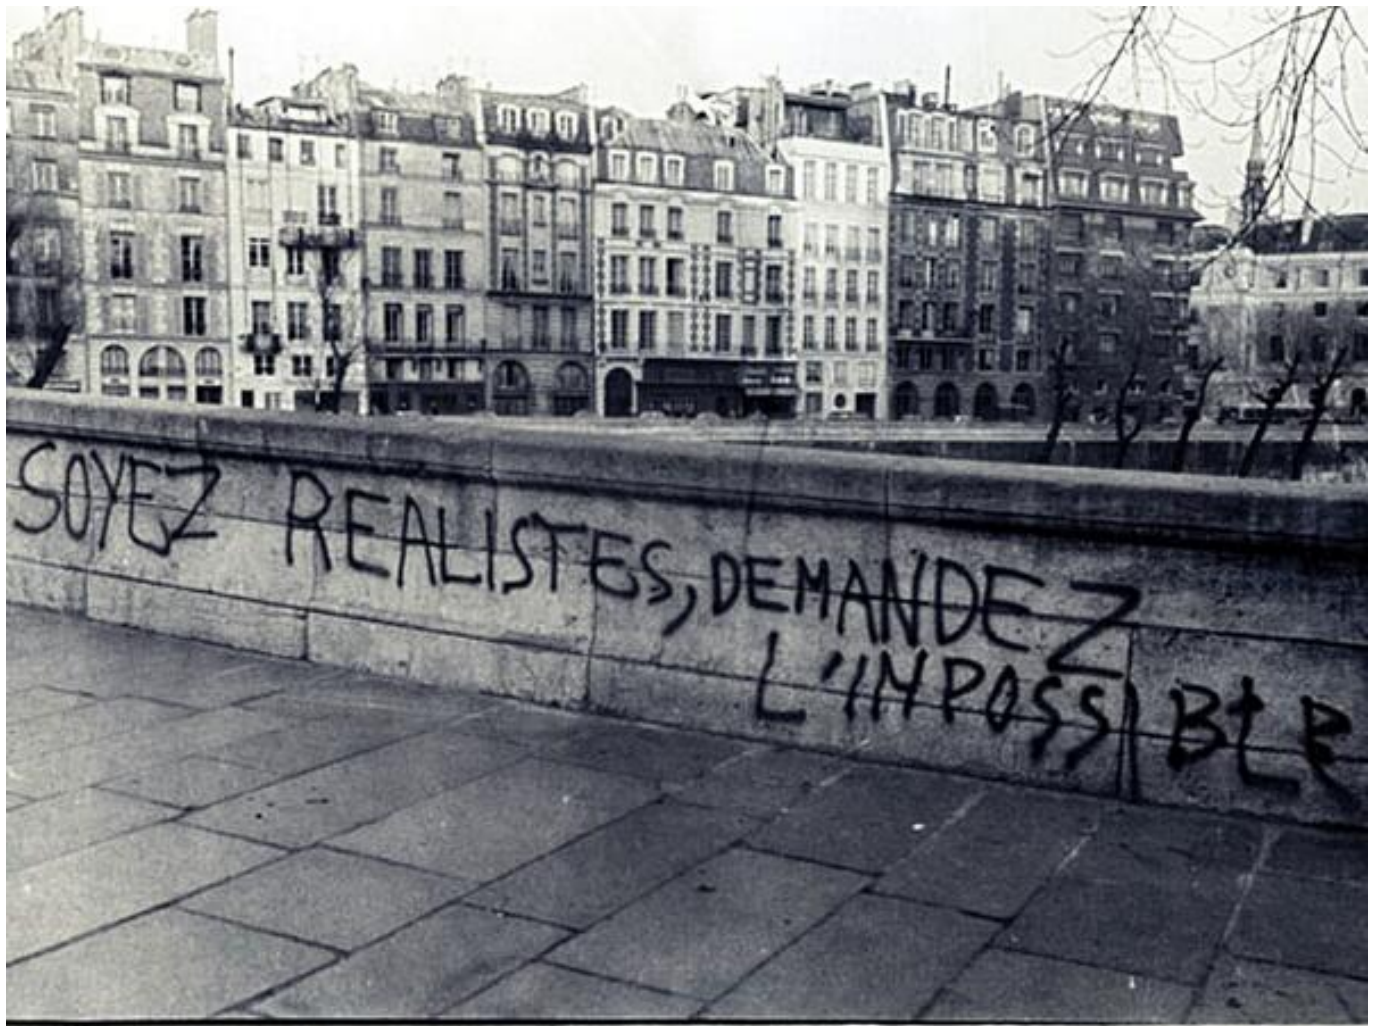 SOYEZ REALISTES, DEMANDEZ
L'IMPOSSIBLE